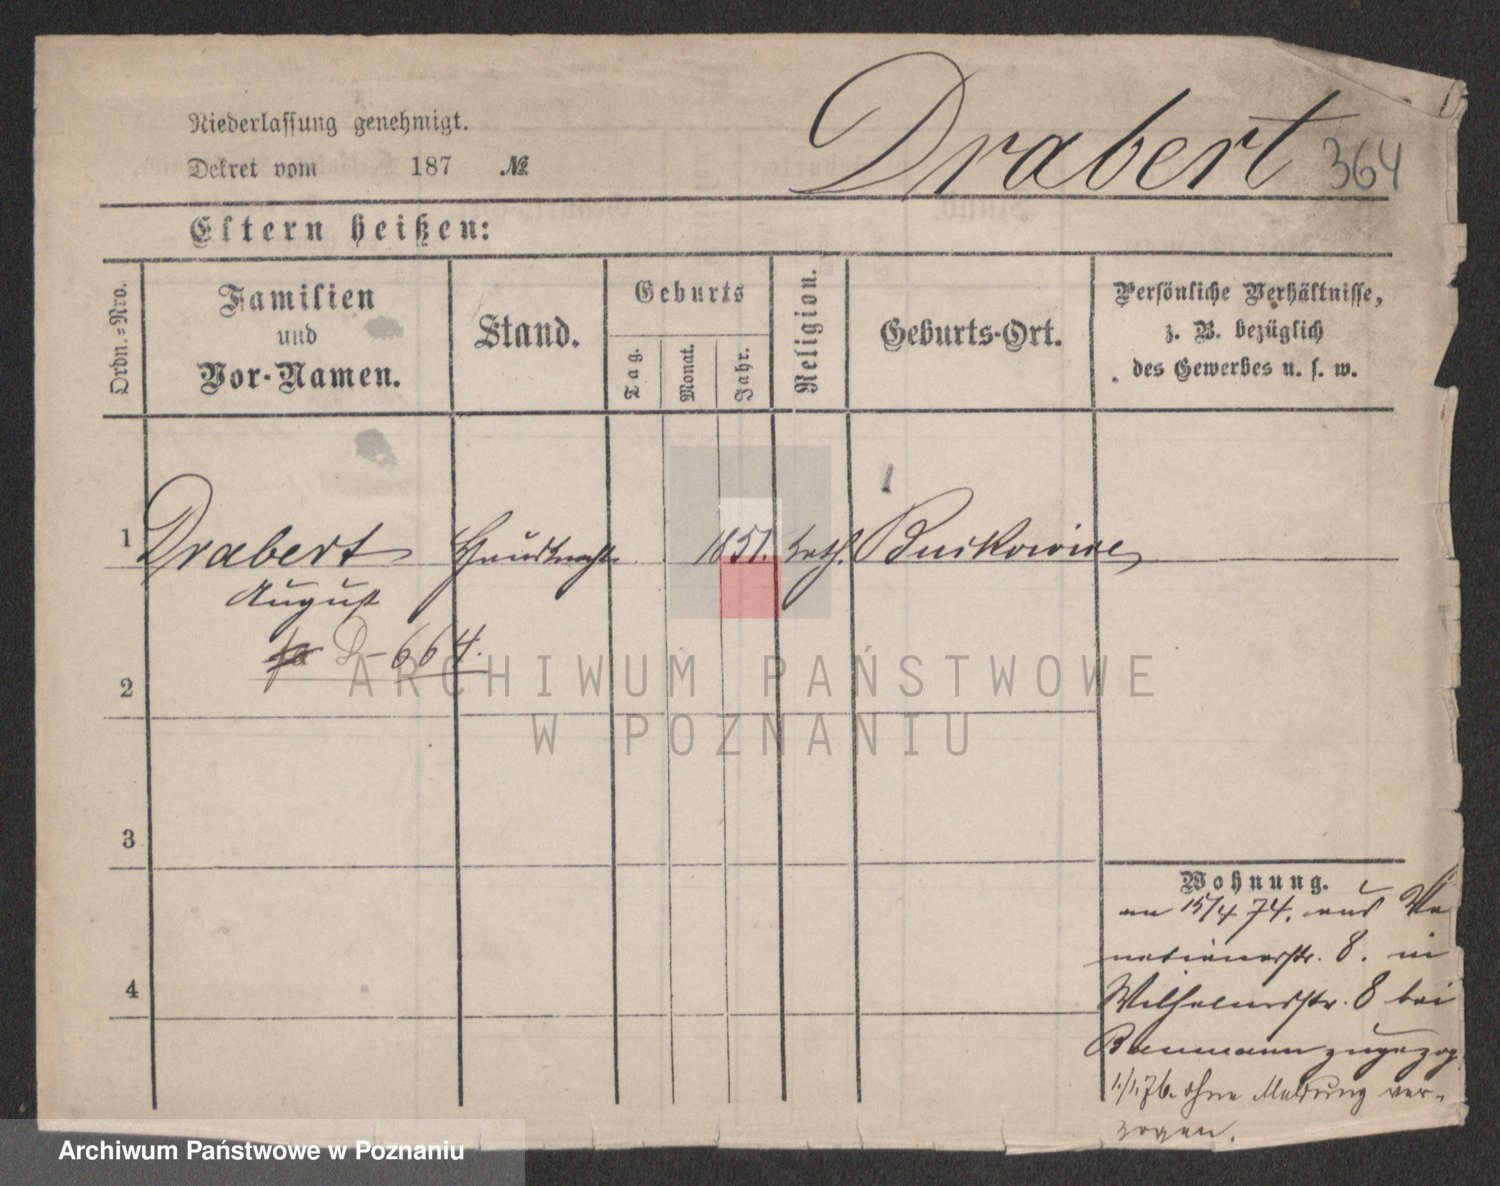 Drabert 364
Niederlassung genehmigt.
Dekret vom 187 №
Eltern heißen:
Ordn.-Nro.
Familien
und
Vor-Namen.
Stand.
Geburts
Tag.
Monat.
Jahr.
Religion.
Geburts-Ort.
Persönliche Verhältnisse,
z. B. bezüglich
des Gewerbes u. s. w.
1 Drabert Hausknecht 1851. kath.
August
D-664.
2
3
4
Wohnung.
am 15/4 74. aus
8. in
Wilhelmsstr. 8 bei
Baumann zugezog.
1./1.76. ohne Meldung ver-
zogen.
ARCHIWUM PAŃSTWOWE
W POZNANIU
Archiwum Państwowe w Poznaniu